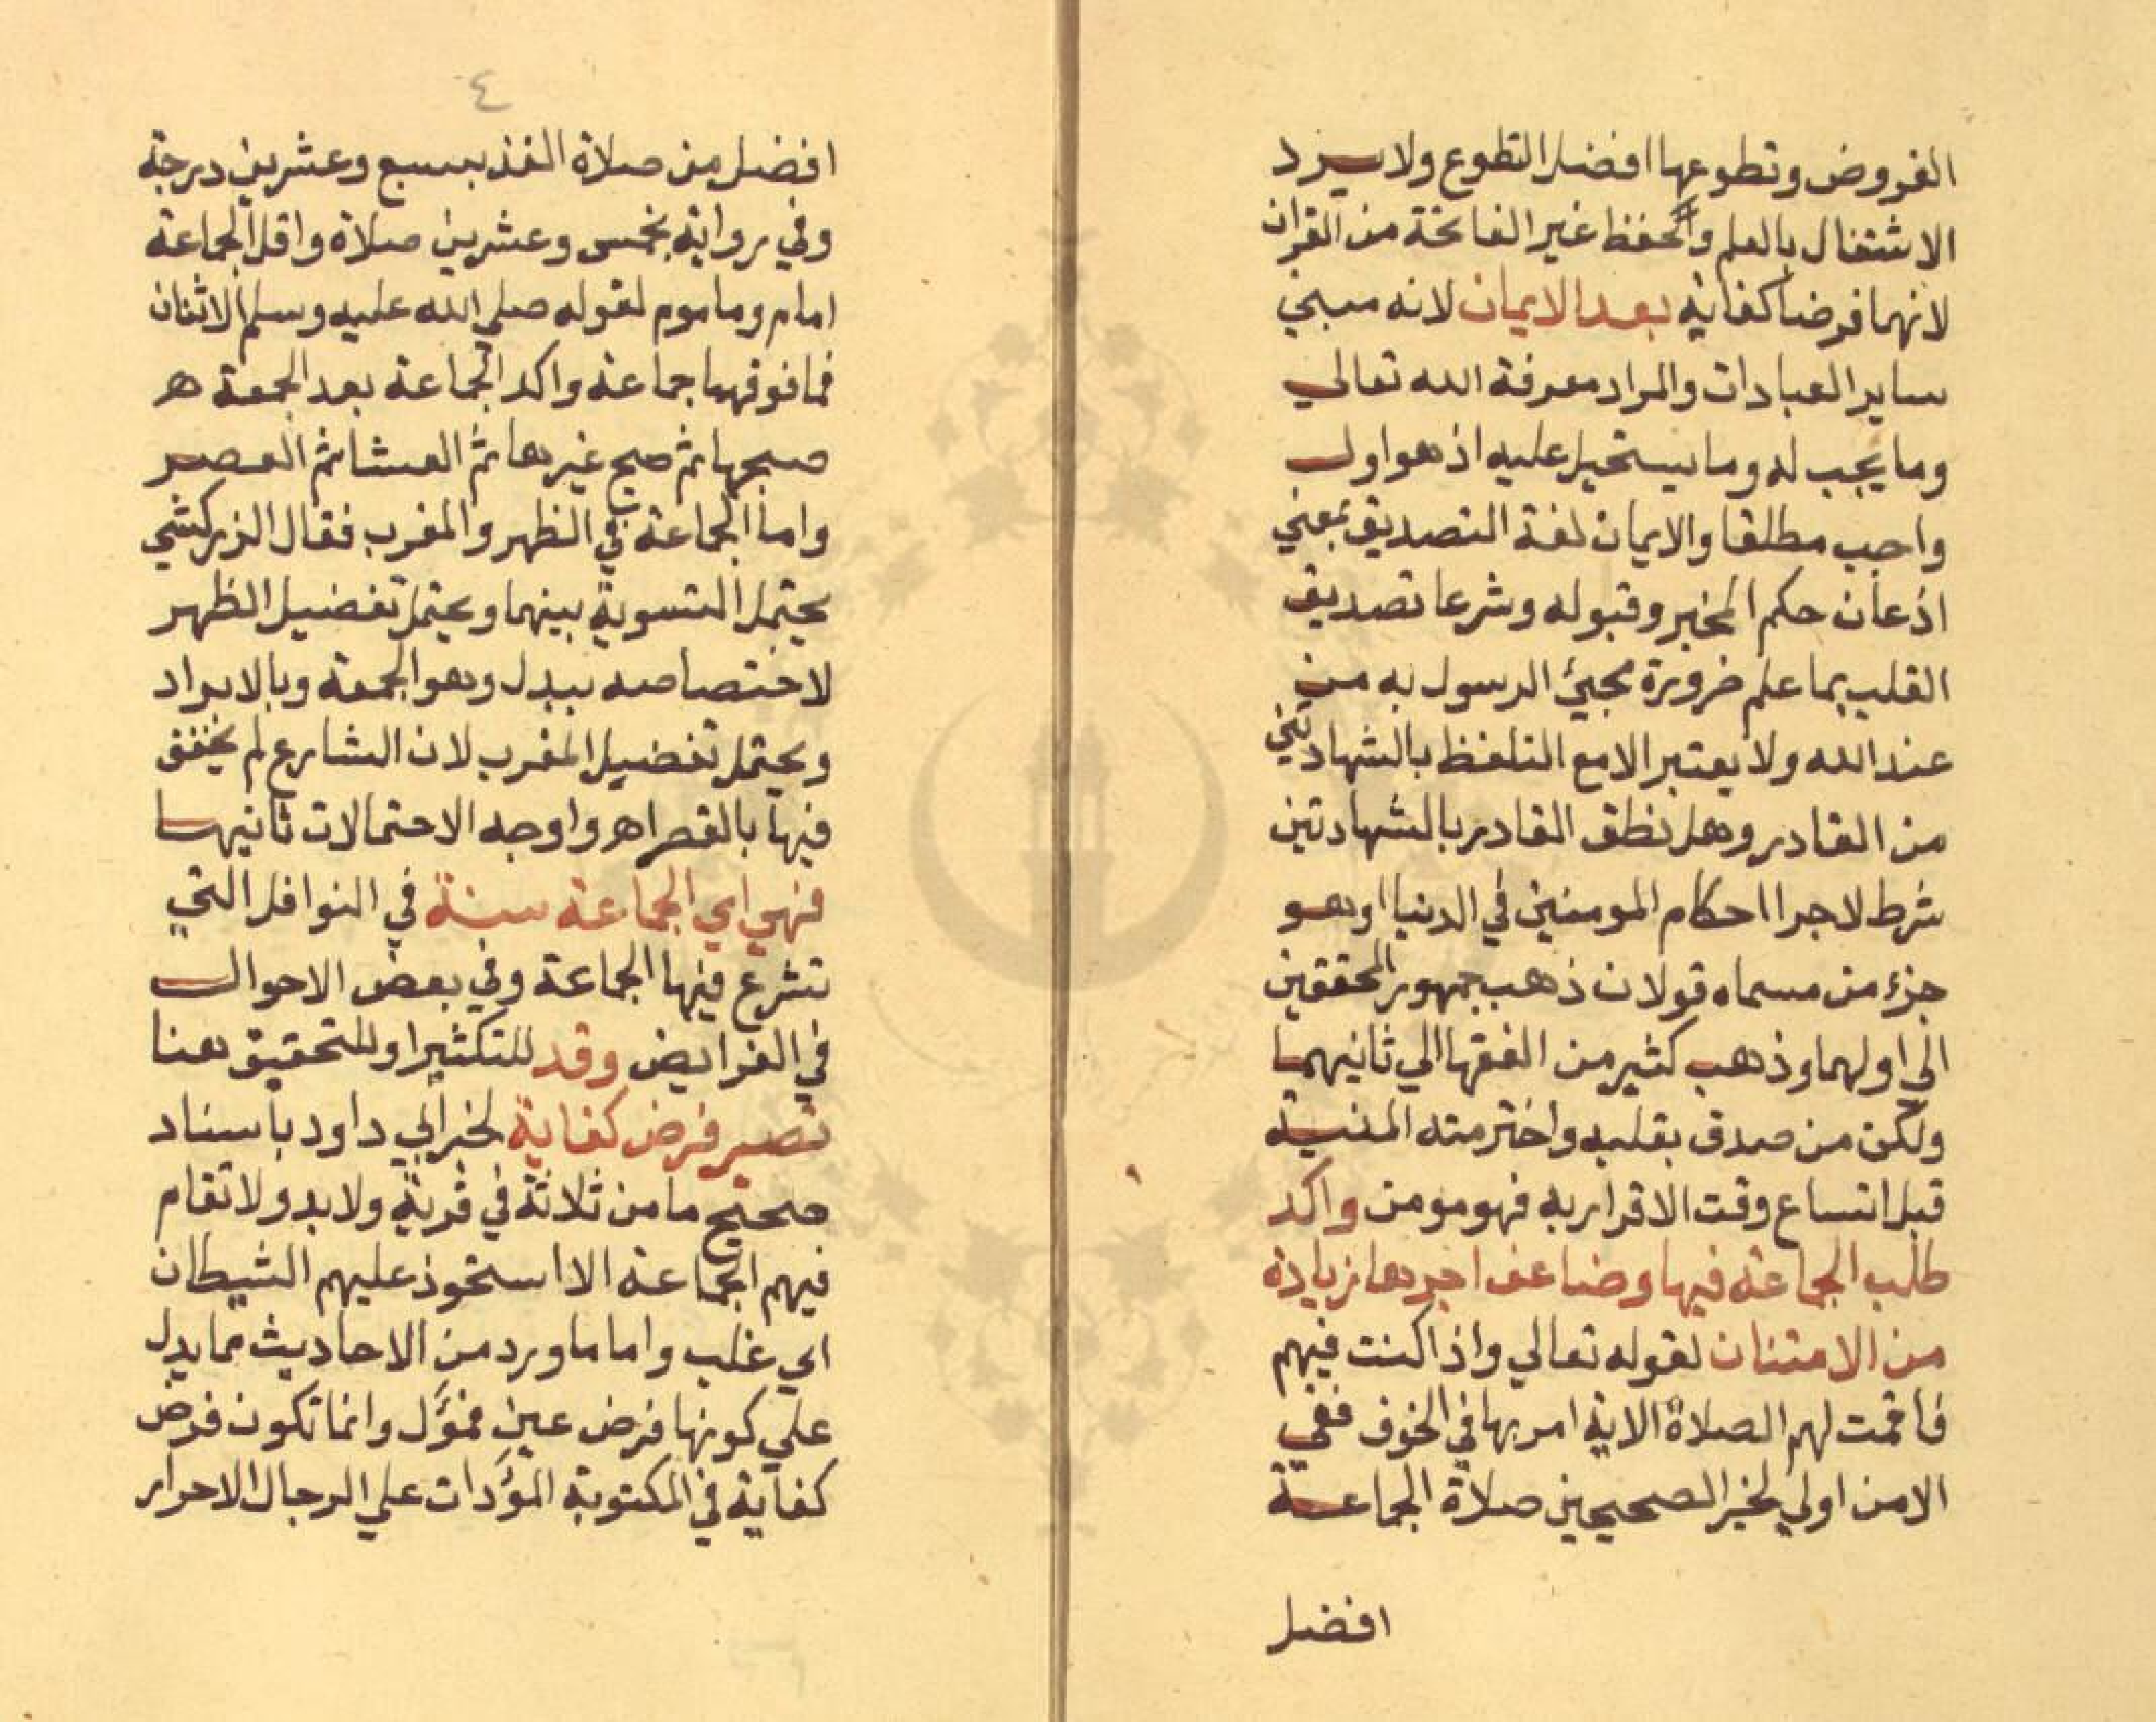 الفروض وتطوعها افضل التطوع ولا يرد
الاشتغال بالعلم والحفظ غير الفاتحة من القران
لانهما فرضا كفاية بعد الايمان لانه مبني
ساير العبادات والمراد معرفة الله تعالي
وما يجب له وما يستحيل عليه اذ هو اول
واجب مطلقا والايمان لغة التصديق بمعني
اذعان حكم المخبر وقبوله وشرعا تصديق
القلب بما علم ضرورة مجيئ الرسول به من
عند الله ولا يعتبر الا مع التلفظ بالشهادتين
من القادر وهل نطق القادر بالشهادتين
شرط لاجرا احكام المومنين في الدنيا او هو
جزء من مسماه قولان ذهب جمهور المحققين
الي اولهما وذهب كثير من الفقها الي ثانيهما
ولكن من صدق بقلبه واخترمته المنية
قبل اتساع وقت الاقرار به فهو مومن واكد
طلب الجماعة فيها وضاعف اجرها زيادة
من الامتنان لقوله تعالي واذا كنت فيهم
فاقمت لهم الصلاة الاية امر بها في الخوف ففي
الامن اولي لخبر الصحيحين صلاة الجماعة
افضل
٤
افضل من صلاة الفذ بسبع وعشرين درجة
وفي رواية بخمس وعشرين صلاة واقل الجماعة
امام وماموم لقوله صلي الله عليه وسلم الاثنان
فما فوقهما جماعة واكد الجماعة بعد الجمعة هـ
صبحها ثم صبح غيرها ثم العشا ثم العصر
واما الجماعة في الظهر والمغرب فقال الزركشي
يحتمل التسوية بينهما ويحتمل تفضيل الظهر
لاختصاصه ببدل وهو الجمعة وبالابراد
ويحتمل تفضيل المغرب لان الشارع لم يخفف
فيها بالقصر اهـ واوجه الاحتمالات ثانيهسا
فهي اي الجماعة سنة في النوافل التي
تشرع فيها الجماعة وفي بعض الاحوال
في الفرايض وقد للتكثير او للتحقيق هنا
تصير فرض كفاية لخبر ابي داود باسناد
صحيح ما من ثلاثة في قرية ولا بدو لا تقام
فيهم الجماعة الا استحوذ عليهم الشيطان
اي غلب واما ما ورد من الاحاديث مما يدل
علي كونها فرض عين فمؤَّل وانما تكون فرض
كفاية في المكتوبة المؤدات علي الرجال الاحرار